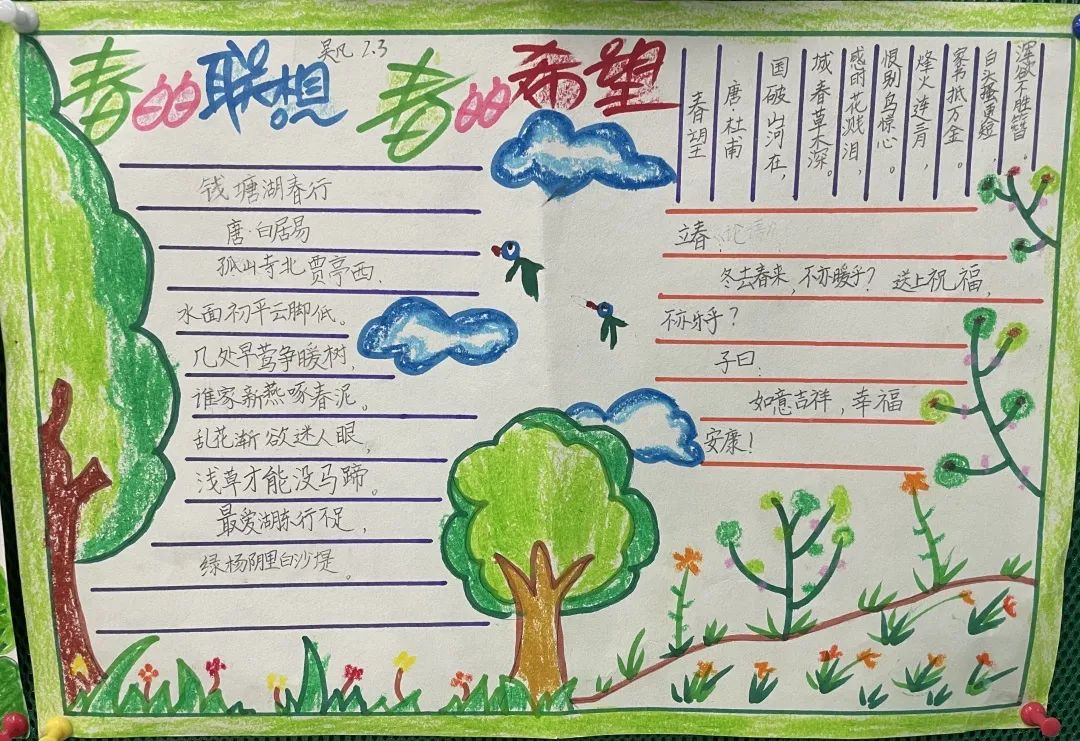 春的联想
吴凡 2.3
春的希望
钱塘湖春行
唐·白居易
孤山寺北贾亭西、
水面初平云脚低。
几处早莺争暖树,
谁家新燕啄春泥。
乱花渐欲迷人眼,
浅草才能没马蹄。
最爱湖东行不足,
绿杨阴里白沙堤。
春望
唐·杜甫
国破山河在,
城春草木深。
感时花溅泪,
恨别鸟惊心。
烽火连三月,
家书抵万金。
白头搔更短,
浑欲不胜簪。
立春
冬去春来,不亦暖乎? 送上祝福,
不亦乐乎?
子曰:
如意吉祥,幸福
安康!